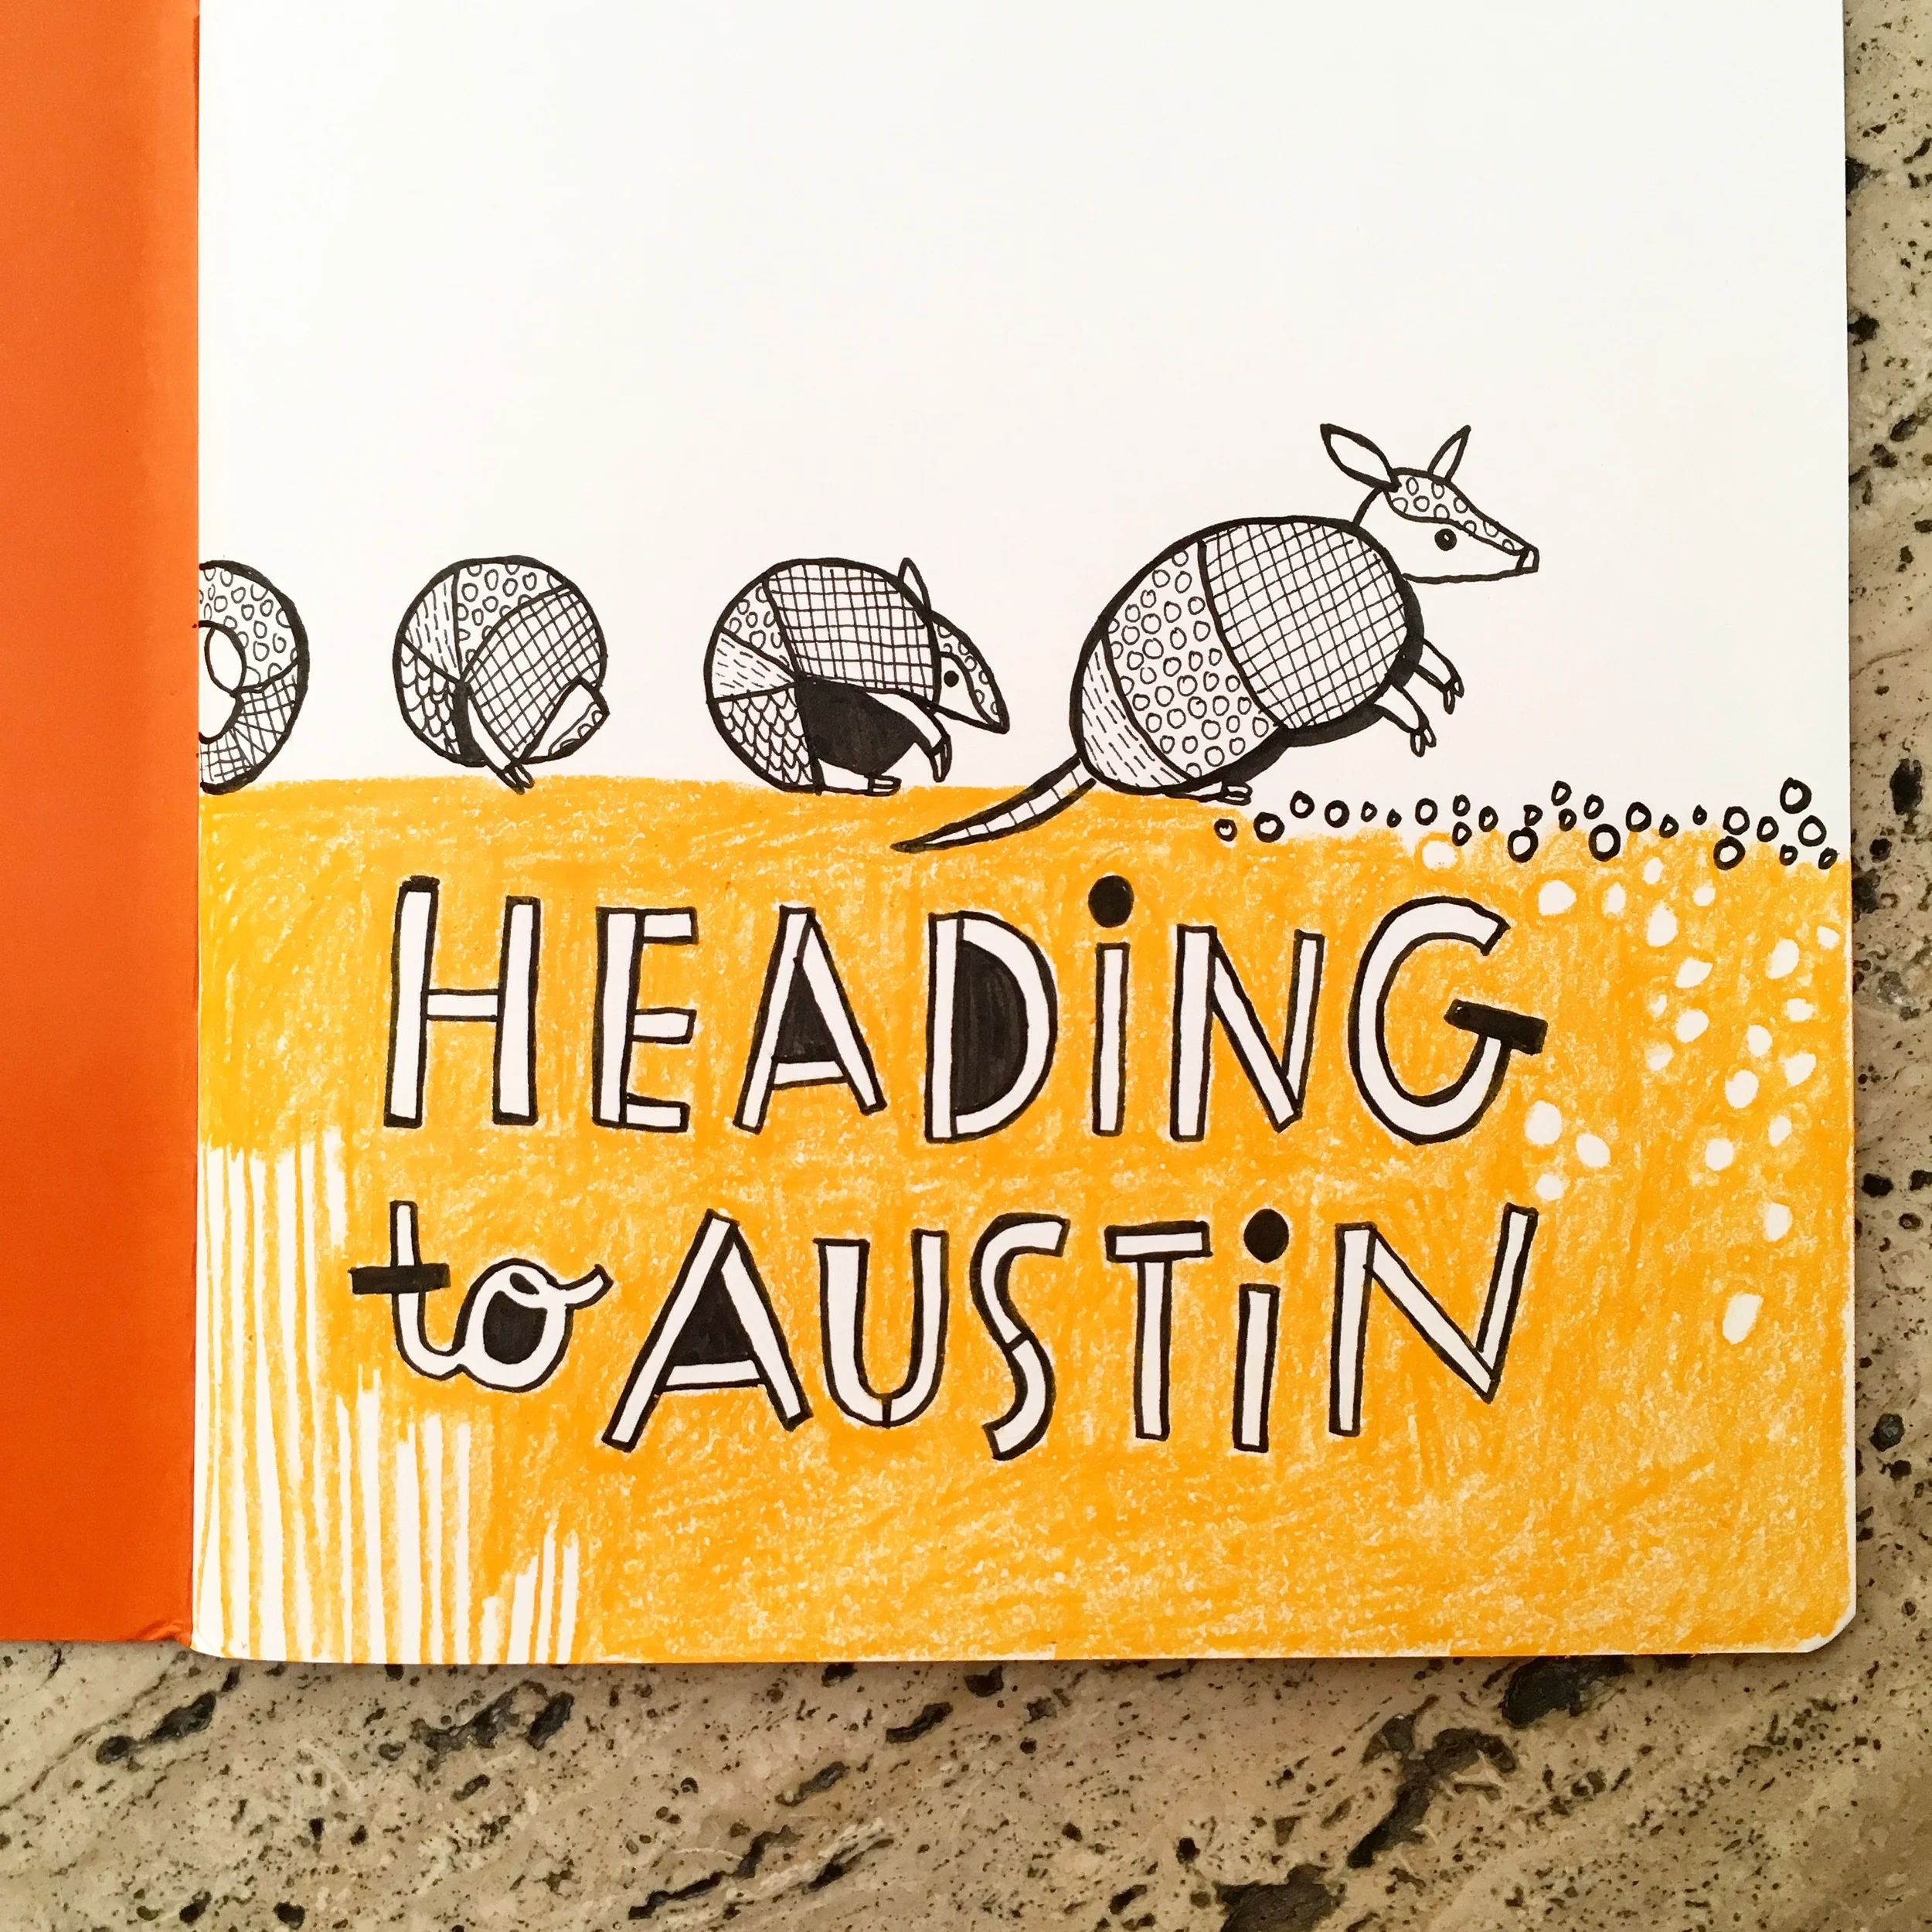 HEADiNG
to AUSTiN